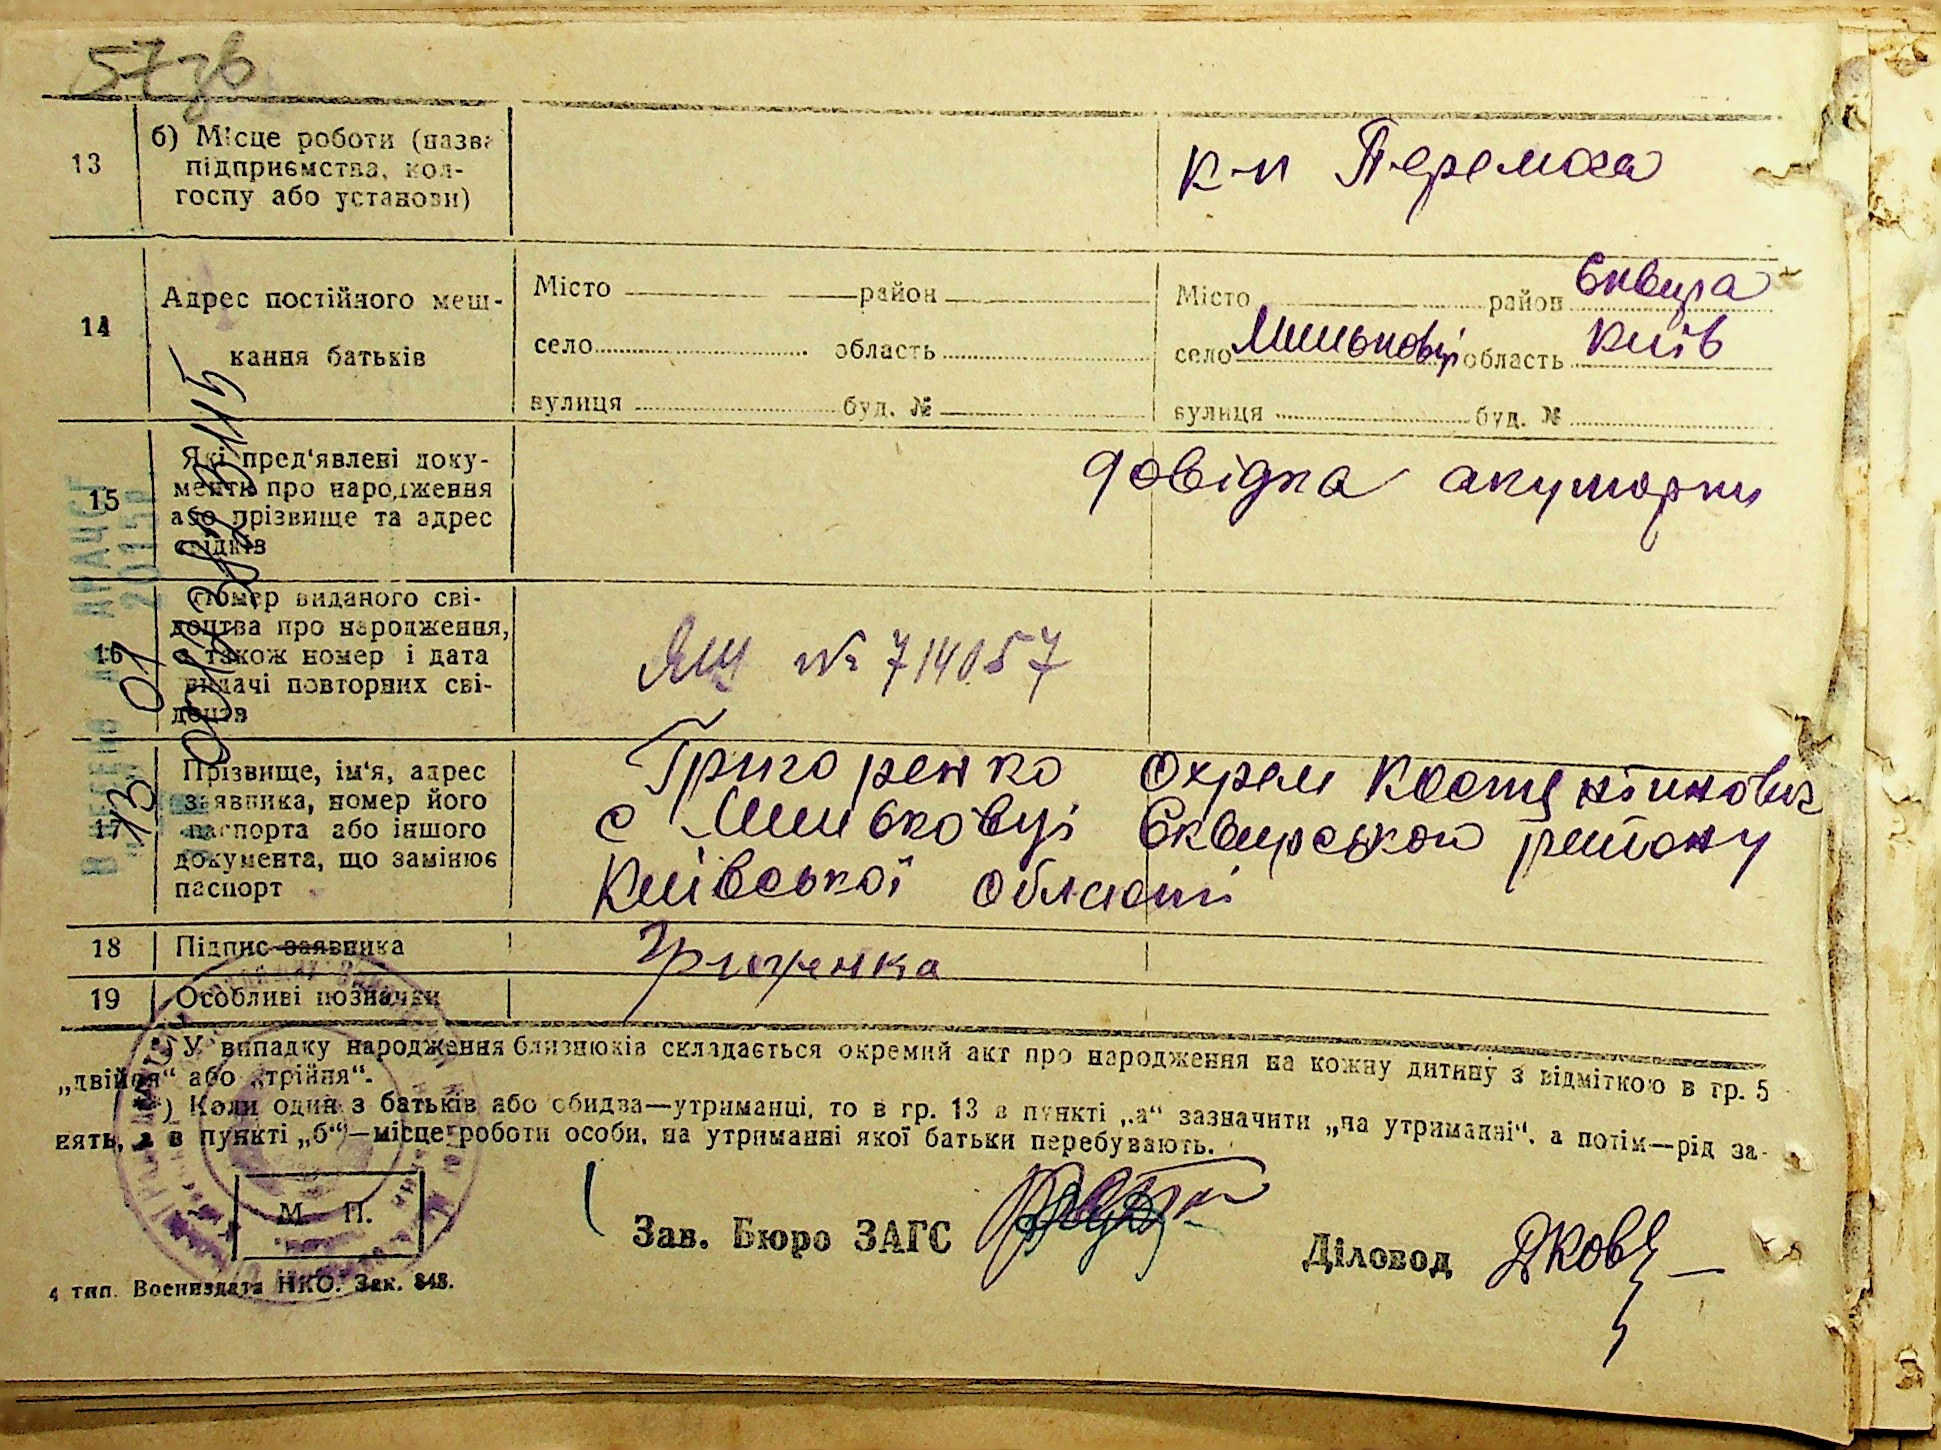 57зв
13
б) Місце роботи (назва
підприємства, кол-
госпу або установи)
к-п Перемога
14
Адрес постійного меш-
кання батьків
Місто район
село область
вулиця буд. №
Місто район Сквира
село Миньковці область Київ
вулиця буд. №
15
Які пред'явлені доку-
менти про народження
або прізвище та адрес
свідків
довідка акушорки
16
Номер виданого сві-
доцтва про народження,
а також номер і дата
видачі повторних сві-
доцтв
ЯШ № 714057
17
Прізвище, ім'я, адрес
заявника, номер його
паспорта або іншого
документа, що замінює
паспорт
Григоренко Охрем
с Миньковці Сквирського району
Київської області
18
Підпис заявника
19
Особливі позначки
*) У випадку народження близнюків складається окремий акт про народження на кожну дитину з відміткою в гр. 5
„двійня“ або „трійня“.
) Коли один з батьків або обидва—утриманці, то в гр. 13 в пункті „а“ зазначити „на утриманні“, а потім—рід за-
нять, а в пункті „б“—місце роботи особи, на утриманні якої батьки перебувають.
М. П.
Зав. Бюро ЗАГС
Діловод
4 тип. Воениздата НКО. Зак. 848.